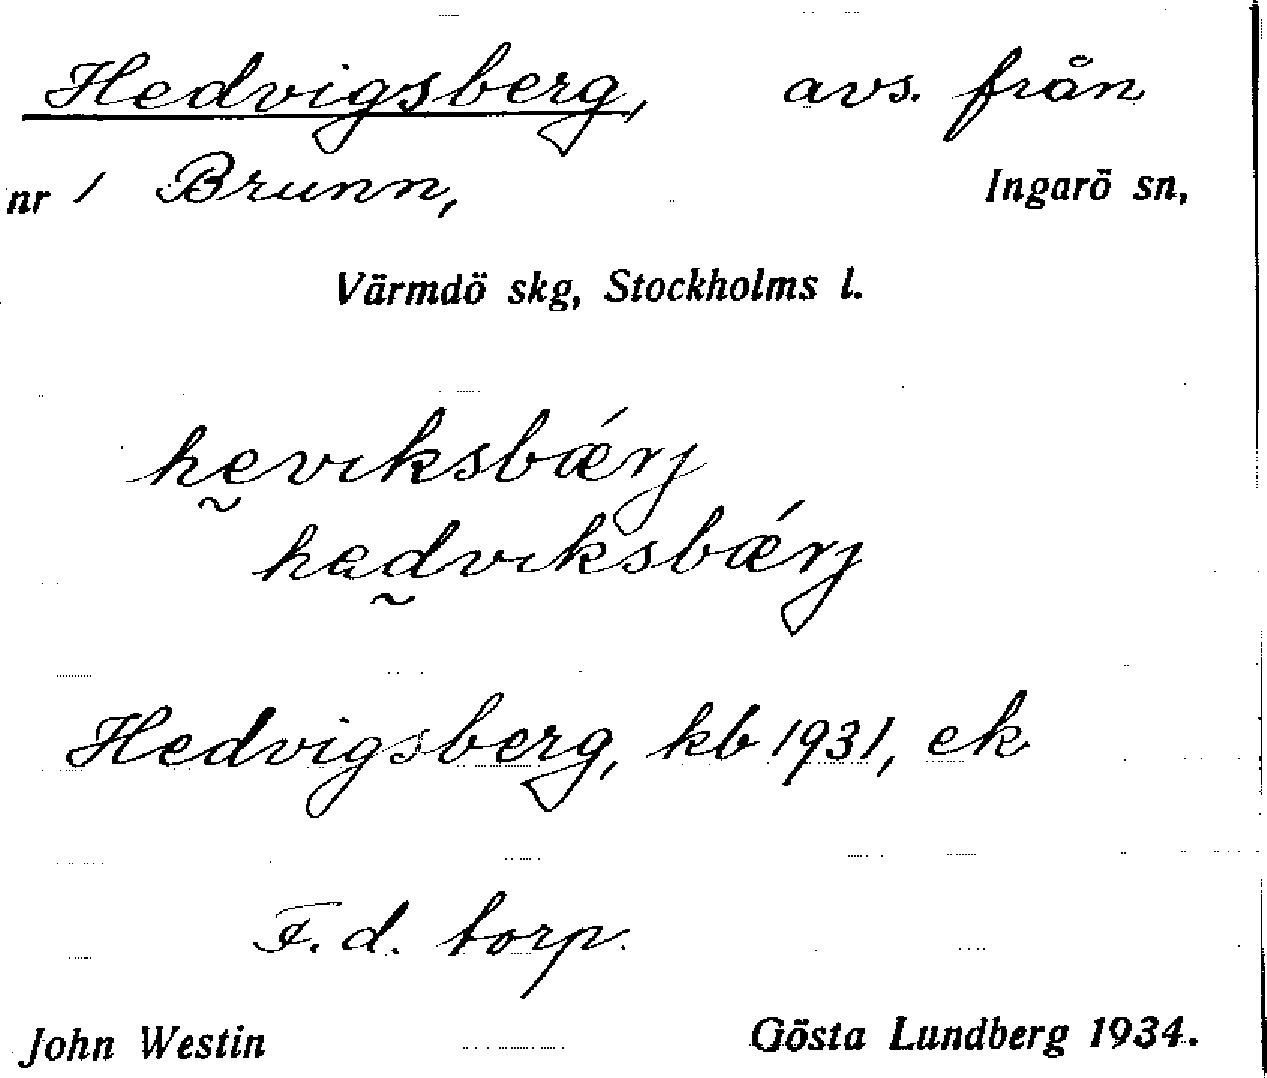 Hedvigsberg, avs. från
nr 1 Brunn, Ingarö sn,
Värmdö skg, Stockholms l.
hḛvıksbǽrj
had̰vıksbǽrj
Hedvigsberg, kb 1931, ek
F. d. torp.
John Westin Gösta Lundberg 1934.